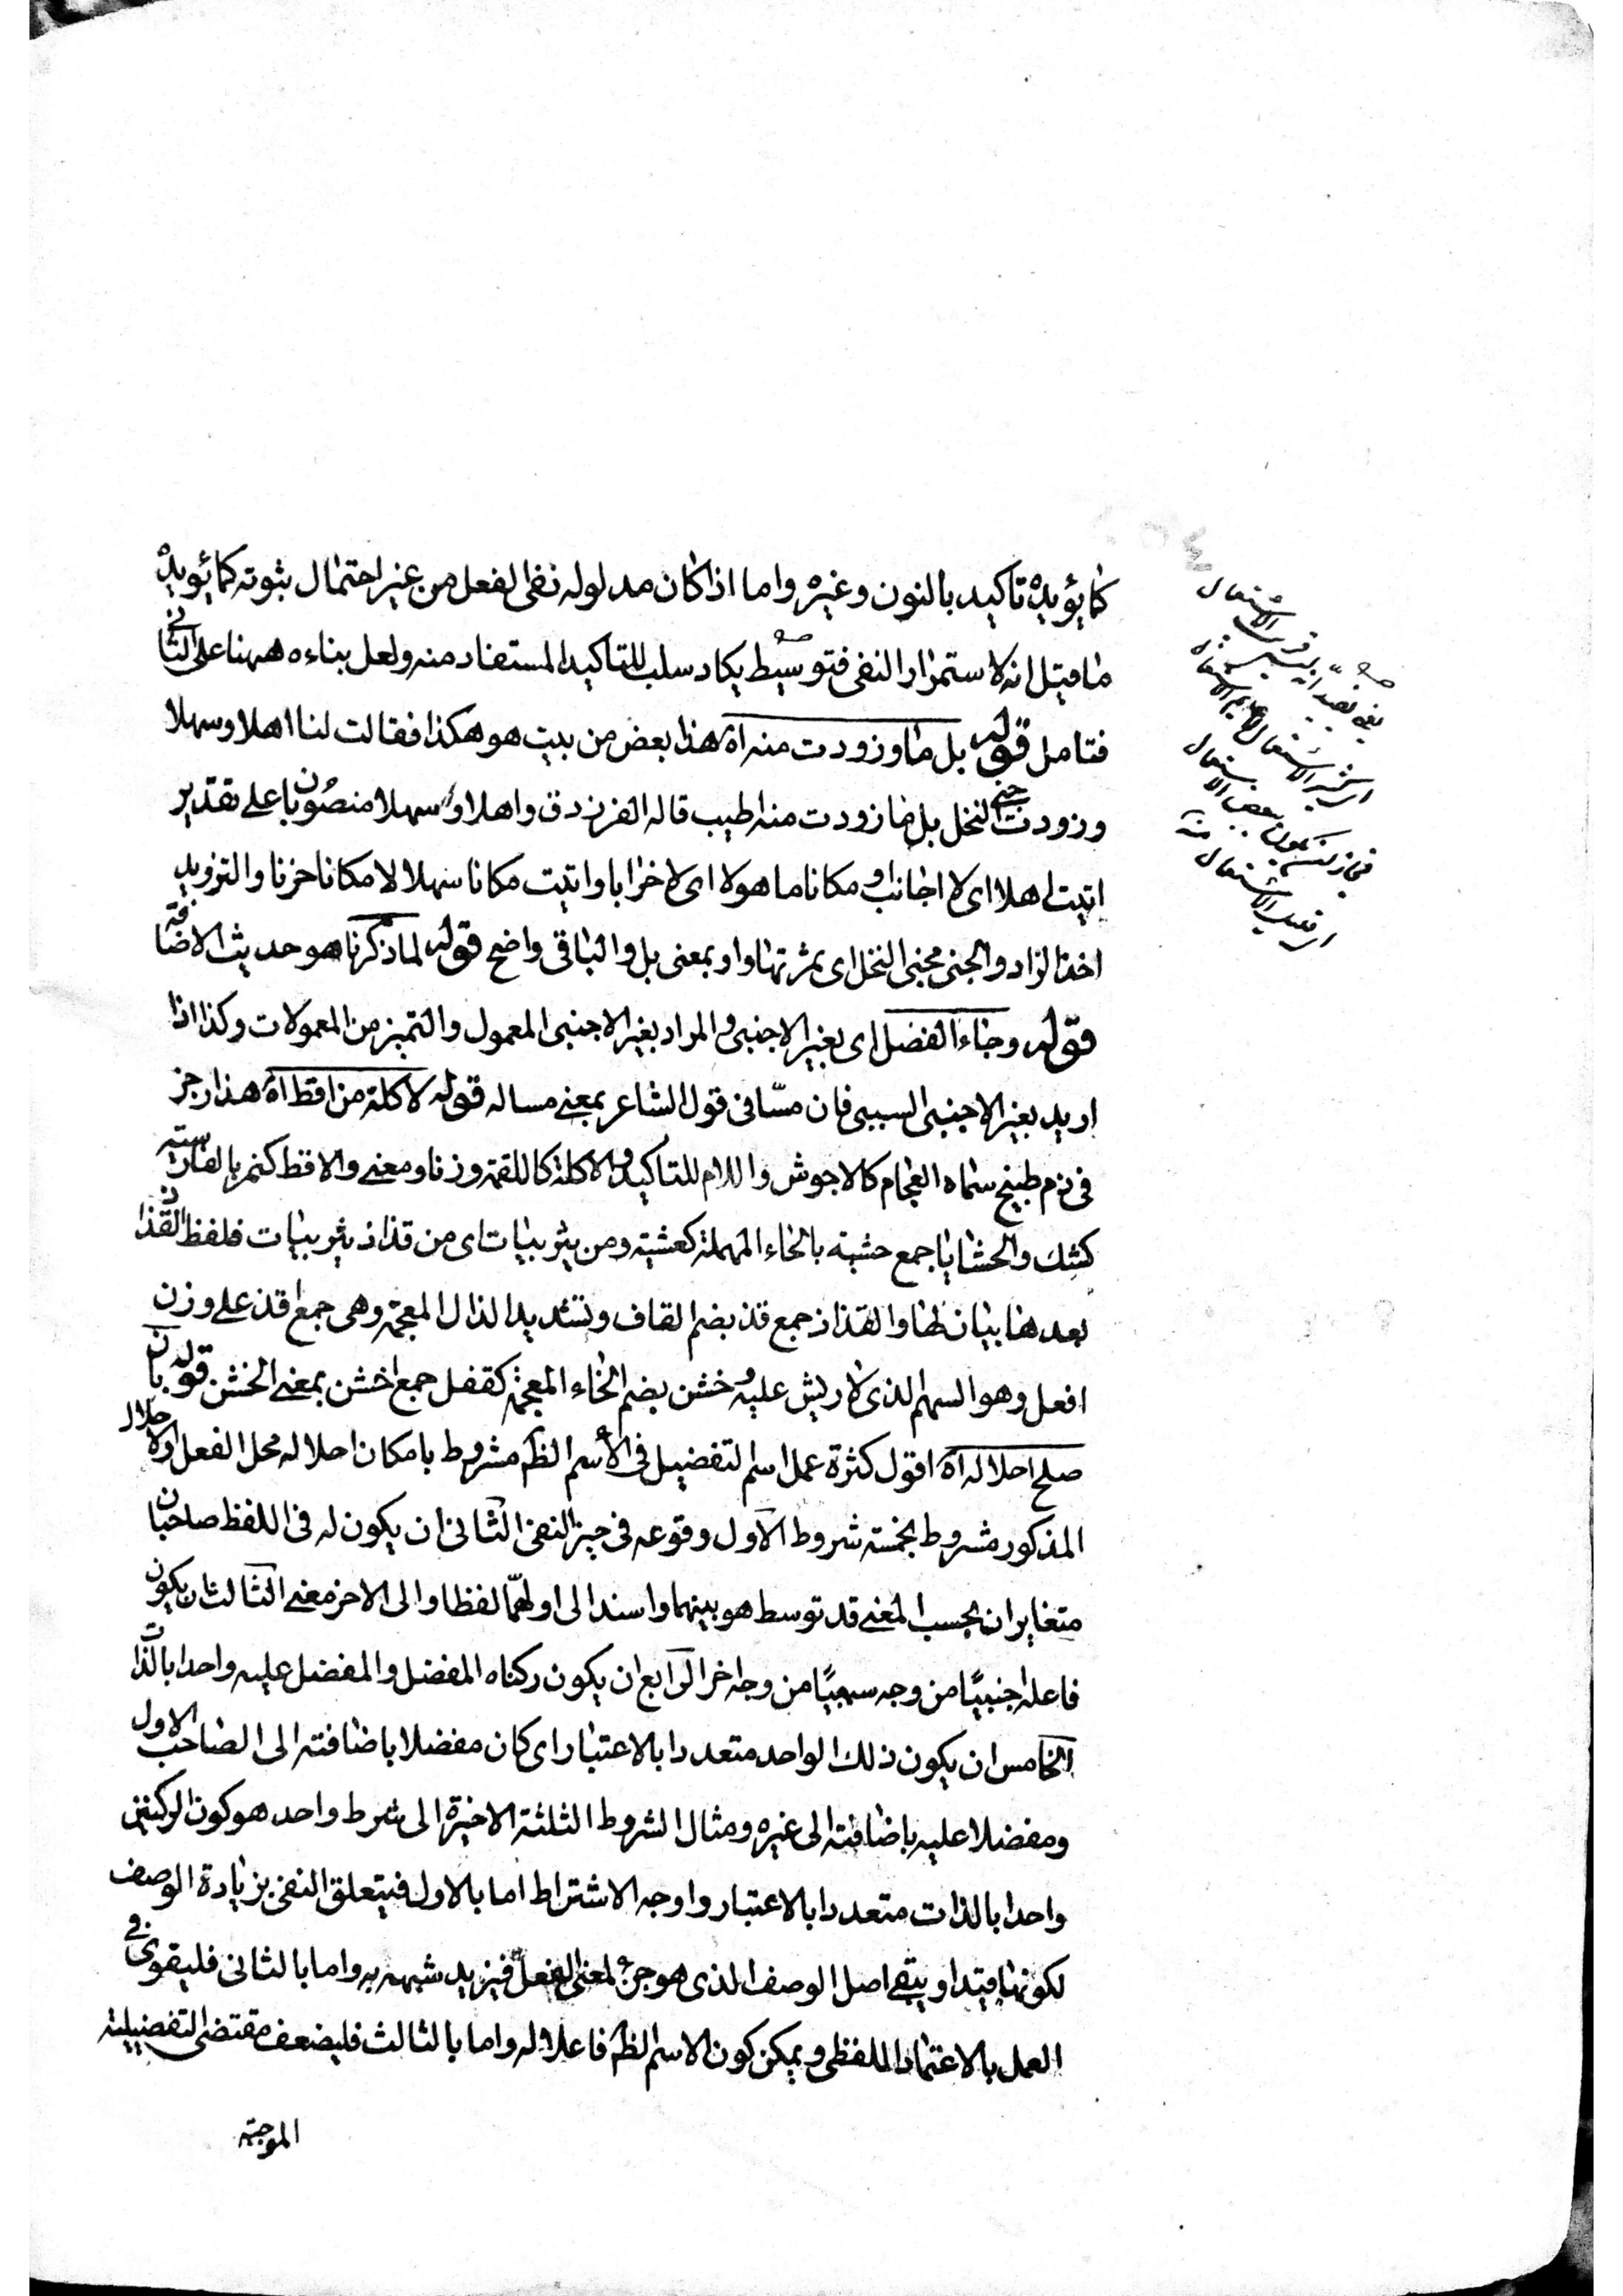 كما يؤيده تاكيد بالنون وغيره واما اذا كان مدلوله نفى الفعل من غير احتمال ثبوته كما يؤيده
ما قيل انه لاستمرار النفى فتوسيط يكاد سلب للتاكيد المستفاد منه ولعل بناءه ههنا على الثانى
فتامل قوله بل ما وزودت منه اه هذا بعض من بيت هو هكذا فقالت لنا اهلا وسهلا
وزودت جنى النخل بل ما زودت منه اطيب قاله الفرزدق واهلا وسهلا منصوبان على تقدير
اتيت اهلا اى لا اجانب او مكانا ماهولا اى لا خرابا واتيت مكانا سهلا لا مكانا حزنا والتزويد
اخذ الزاد والجنى مجنى النخل اى ثمرتها واو بمعنى بل والباقى واضح قوله لما ذكرنا هو حديث الاضافة
قوله وجاء الفصل اى بغير الاجنبى والمراد بغير الاجنبى المعمول والتميز من المعمولات وكذا اذا
اريد بغير الاجنبى السببى فان مسّا فى قول الشاعر بمعنى مساله قوله لاكلة من اقط اه هذا رجز
فى ذم طبيخ سماه العجام كالاجوش واللام للتاكيد والاكلة كاللقمة وزنا ومعنى والاقط كنمر بالفارسية
كشك والحشايا جمع حشية بالحاء المهملة كعشية ومن يثربيات اى من قذاذ يثربيات فلفظ القذاذ
بعدها بيان لها والقذاذ جمع قذ بضم القاف وتشديد الذال المعجمة وهى جمع اقذ على وزن
افعل وهو السهم الذى لا ريش عليه وخشن بضم الخاء المعجمة كقفل جمع اخشن بمعنى الخشن قوله بان
صلح احلاله اه اقول كثرة عمل اسم التفضيل فى الأسم الظ مشروط بامكان احلاله محل الفعل والاحلال
المذكور مشروط بخمسة شروط الاول وقوعه فى حيز النفى الثانى ان يكون له فى اللفظ صاحبان
متغايران بحسب المعنى قد توسط هو بينهما واسند الى اولهما لفظا والى الاخر معنى الثالث ان يكون
فاعله اجنبيًا من وجه سببيًا من وجه اخر الرابع ان يكون ركناه المفضل والمفضل عليه واحدا بالذات
الخامس ان يكون ذلك الواحد متعددا بالاعتبار اى كان مفضلا باضافته الى الصاحب الاول
ومفضلا عليه باضافته الى غيره ومثال الشروط الثلثة الاخيرة الى شرط واحد هو كون الركنين
واحدا بالذات متعددا بالاعتبار واوجه الاشتراط اما بالاول فيتعلق النفى بزيادة الوصف
لكونها قيدا ويبقى اصل الوصف الذى هو جزء لمعنى الفعل فيزيد شبهه به واما بالثانى فليقوى فى
العمل بالاعتماد اللفظى ويمكن كون الاسم الظ فاعلا له واما بالثالث فليضعف مقتضى التفضيلية
الموجبة